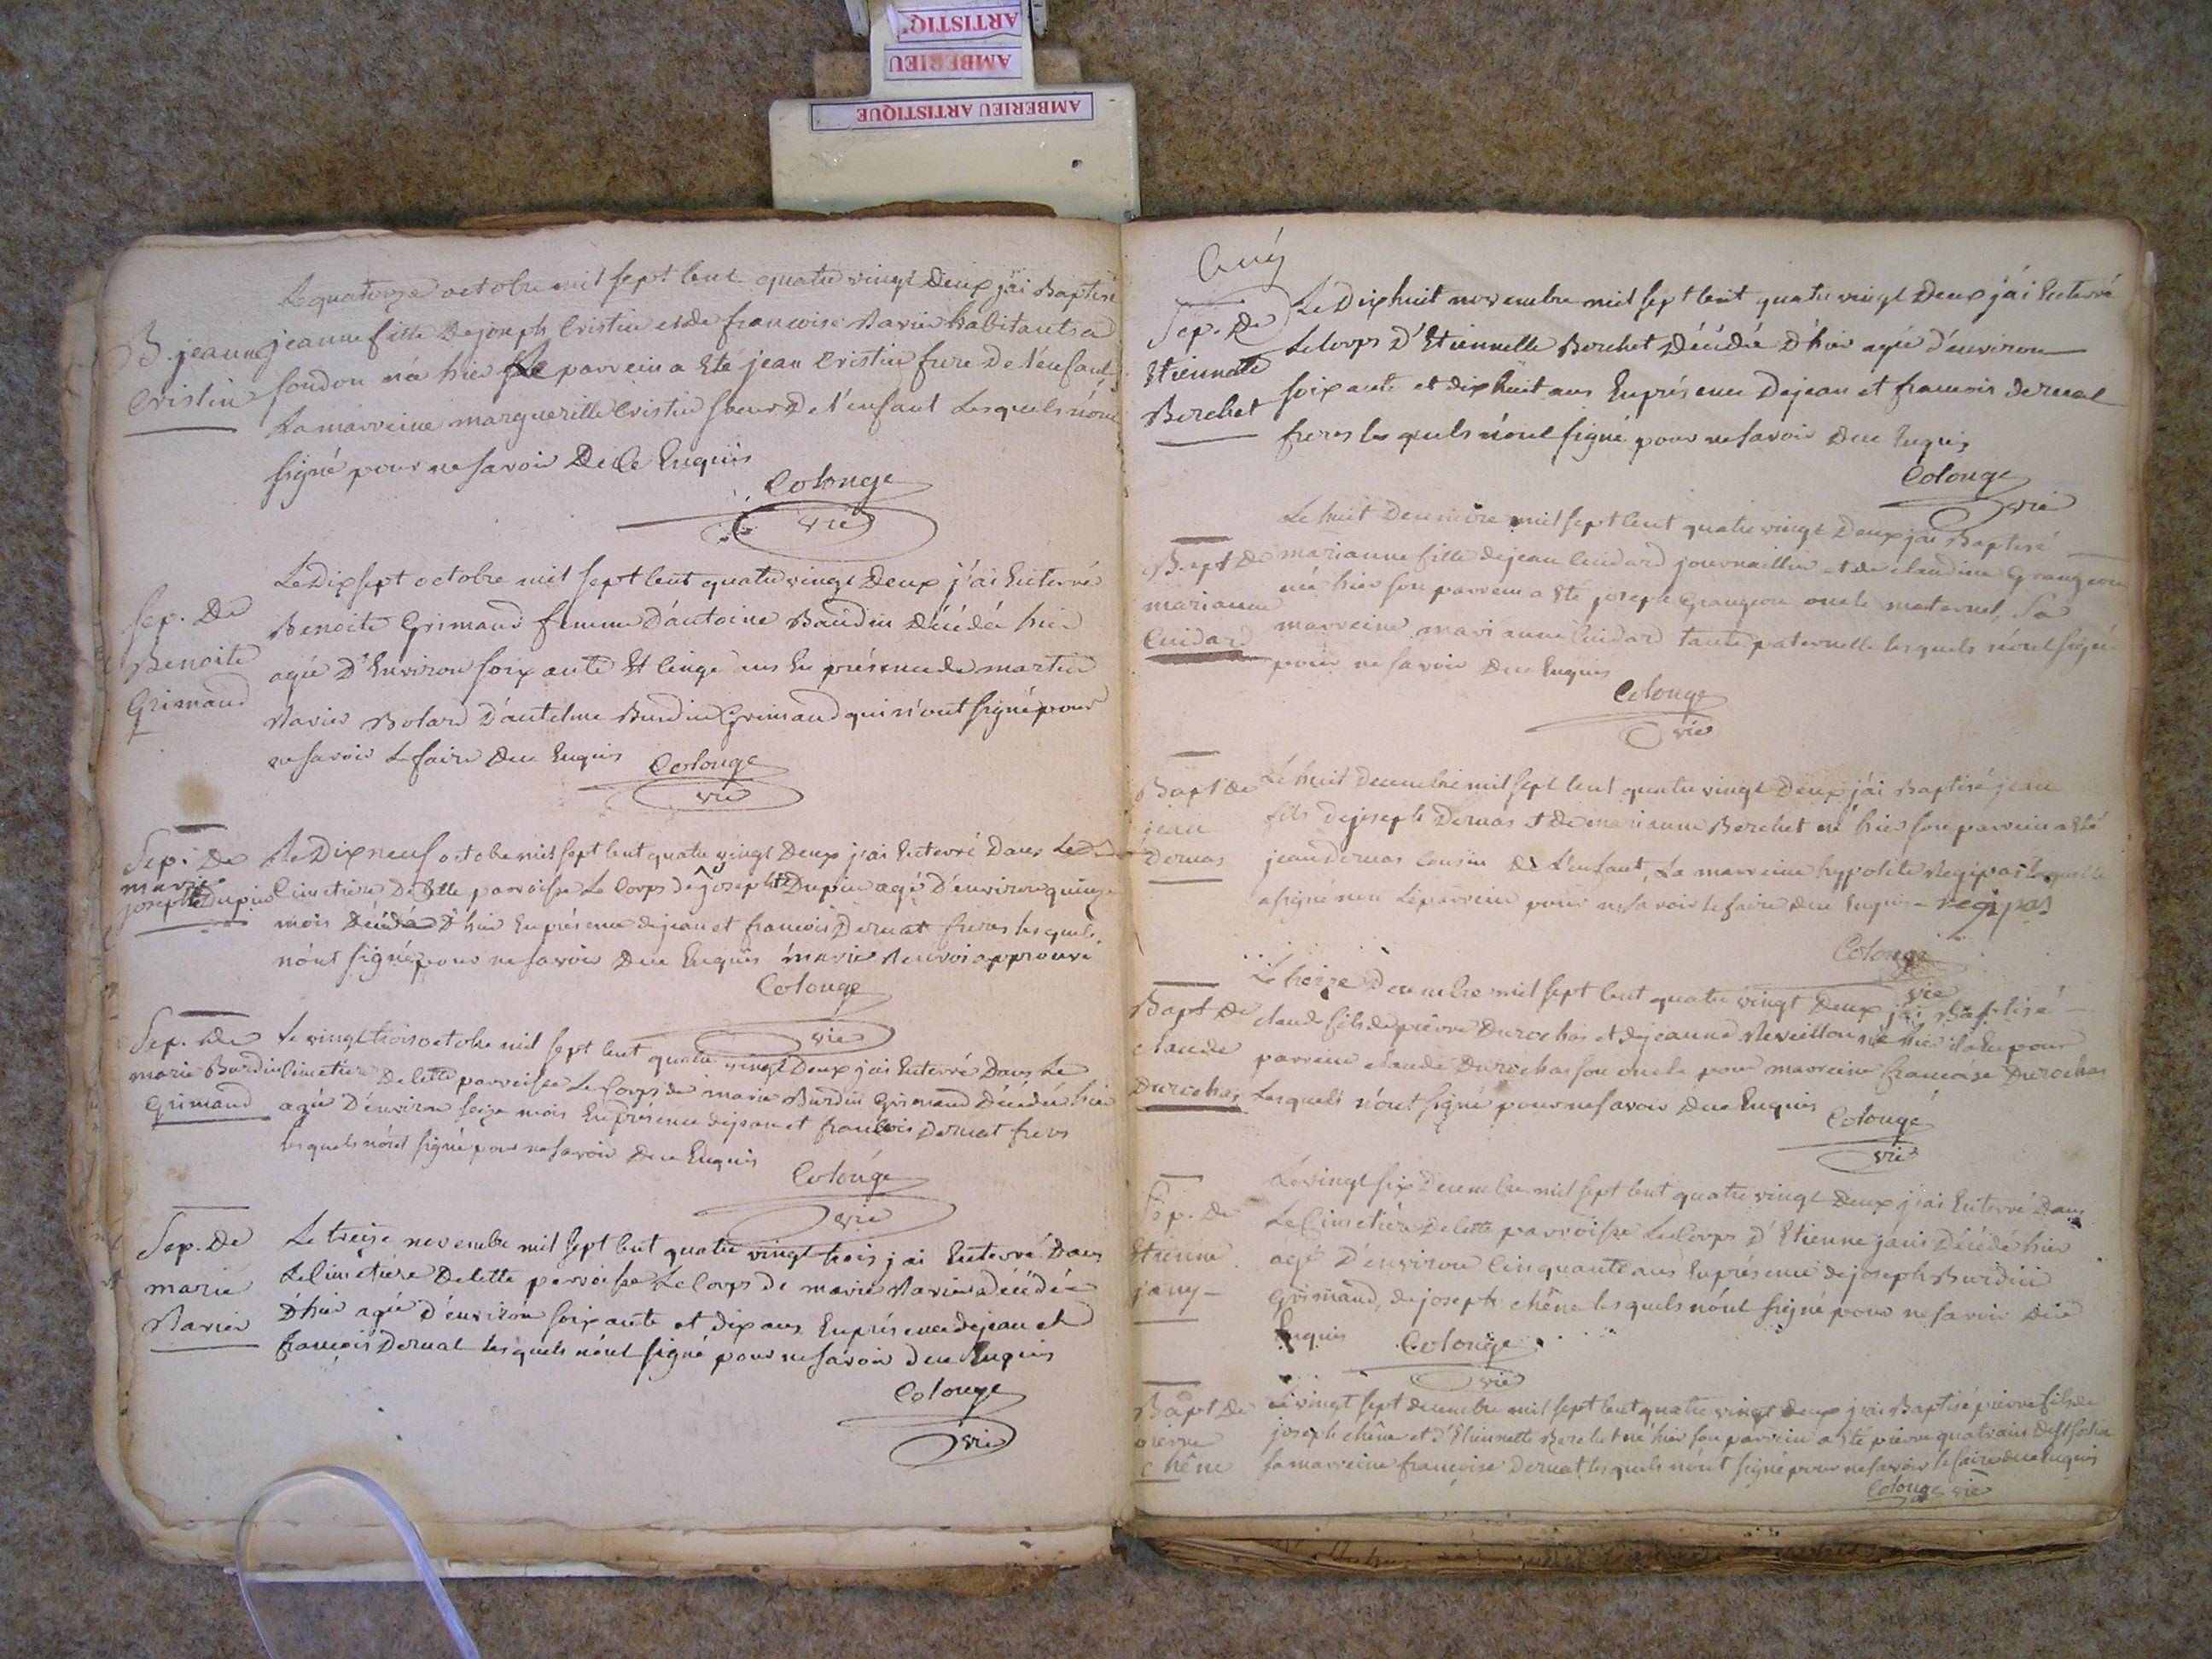 ARTISTIQ
AMBERIEU
AMBERIEU ARTISTIQUE
Le quatorze octobre mil sept Cent quatre vingt Deux j'ai Baptisé
B. jeanne
Cristin
jeanne fille De joseph Cristin et de francoise Navier habitants a
née hier parrein a Eté jean Cristin frere De l'enfant
La marreine margueritte Cristin soeur De l'enfant Lesquels n'ont
signé pour ne savoir De Ce Enquis
Colonge
vic
Le Dix sept octobre mil sept Cent quatre vingt Deux j'ai Enterré
Sep. De
Benoite
Grimaud
Benoite Grimaud femme D'antoine Baudin Décédée hier
agée D'Environ soixante Et Cinq ans En présence de martin
Navier Bolard D'antelme Burdin Grimaud qui n'ont signé pour
ne savoir Le faire Due Enquis
Colonge
vic
Sep. De
marie
josephte Dupin
Le Dix neuf octobre mil sept Cent quatre vingt Deux j'ai Enterré Dans Le
Cimetiere De Cette parroisse Le Corps de josephte Dupin agé D'environ quinze
mois Décédé D'hier En présence de jean et francois Dernat freres lesquels
n'ont signé pour ne savoir Due Enquis marie approuvé
Colonge
vic
Sep. De
marie Burdin
Grimaud
Le vingt trois octobre mil sept Cent quatre vingt Deux j'ai Enterré Dans Le
Cimetiere De Cette parroisse Le Corps de marie Burdin Grimaud Décédée hier
agée D'environ seize mois En présence de jean et francois Dernat freres
lesquels n'ont signé pour ne savoir Due Enquis
Colonge
vic
Sep. De
marie
Navier
Le treize novembre mil sept Cent quatre vingt trois j'ai Enterré Dans
Le Cimetiere De Cette parroisse Le Corps de marie Navier Décédée
D'hier agée D'environ soixante et dix ans En présence de jean et
francois Dernat lesquels n'ont signé pour ne savoir Due Enquis
Colonge
vic
Sep. De
Etiennette
Berchet
Le Dix huit novembre mil sept Cent quatre vingt Deux j'ai Enterré
Le Corps D'Etiennette Berchet Décédée D'hier agée d'environ
soixante et dix huit ans En présence De jean et francois Dernat
freres lesquels n'ont signé pour ne savoir Due Enquis
Colonge
vic
Bapt De
marianne
Cuidard
Le huit Decembre mil sept Cent quatre vingt Deux j'ai Baptisé
marianne fille de jean Cuidard journaillier et de claudine Grangeon
née hier son parrein a Eté joseph Grangeon oncle maternel, Sa
marreine marianne Cuidard tante paternelle lesquels n'ont signé
pour ne savoir Due Enquis
Colonge
vic
Bapt De
jean
Dernas
Le huit Decembre mil sept Cent quatre vingt Deux j'ai Baptisé jean
fils de joseph Dernas et de marianne Berchet né hier son parrein a Eté
jean Dernas Cousin De L'enfant, La marreine hypolite Regipas laquelle
a signé non Le parrein pour ne savoir le faire Due Enquis - regipas
Colonge
vic
Bapt De
claude
Durochas
Le treize Decembre mil sept Cent quatre vingt Deux j'ai Baptisé
claude fils de pierre Durochas et de jeanne Reveillon né hier il a Eu pour
parrein claude Durochas son oncle pour marreine francoise Durochas
Lesquels n'ont signé pour ne savoir Due Enquis
Colonge
vic
Sep. De
Etienne
jany
Le vingt six Decembre mil sept Cent quatre vingt Deux j'ai Enterré Dans
Le Cimetiere De Cette parroisse Le Corps D'Etienne jani Décédé hier
agé D'environ Cinquante ans En présence de joseph Burdin
Grimaud, de joseph chêne lesquels n'ont signé pour ne savoir Due
Enquis
Colonge
vic
Bapt De
pierre
chêne
Le vingt sept decembre mil sept Cent quatre vingt Deux j'ai Baptisé pierre fils de
joseph chêne et d'Etiennette Berchet né hier son parrein a Eté pierre
sa marreine francoise Dernat, lesquels n'ont signé pour ne savoir le faire due Enquis
Colonge vic